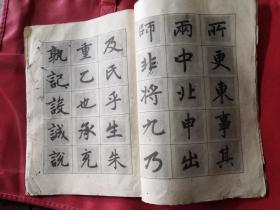 所更東事其
兩中北申出
師非將九乃
及氏乎生朱
重乙也承充
孰記設誠說